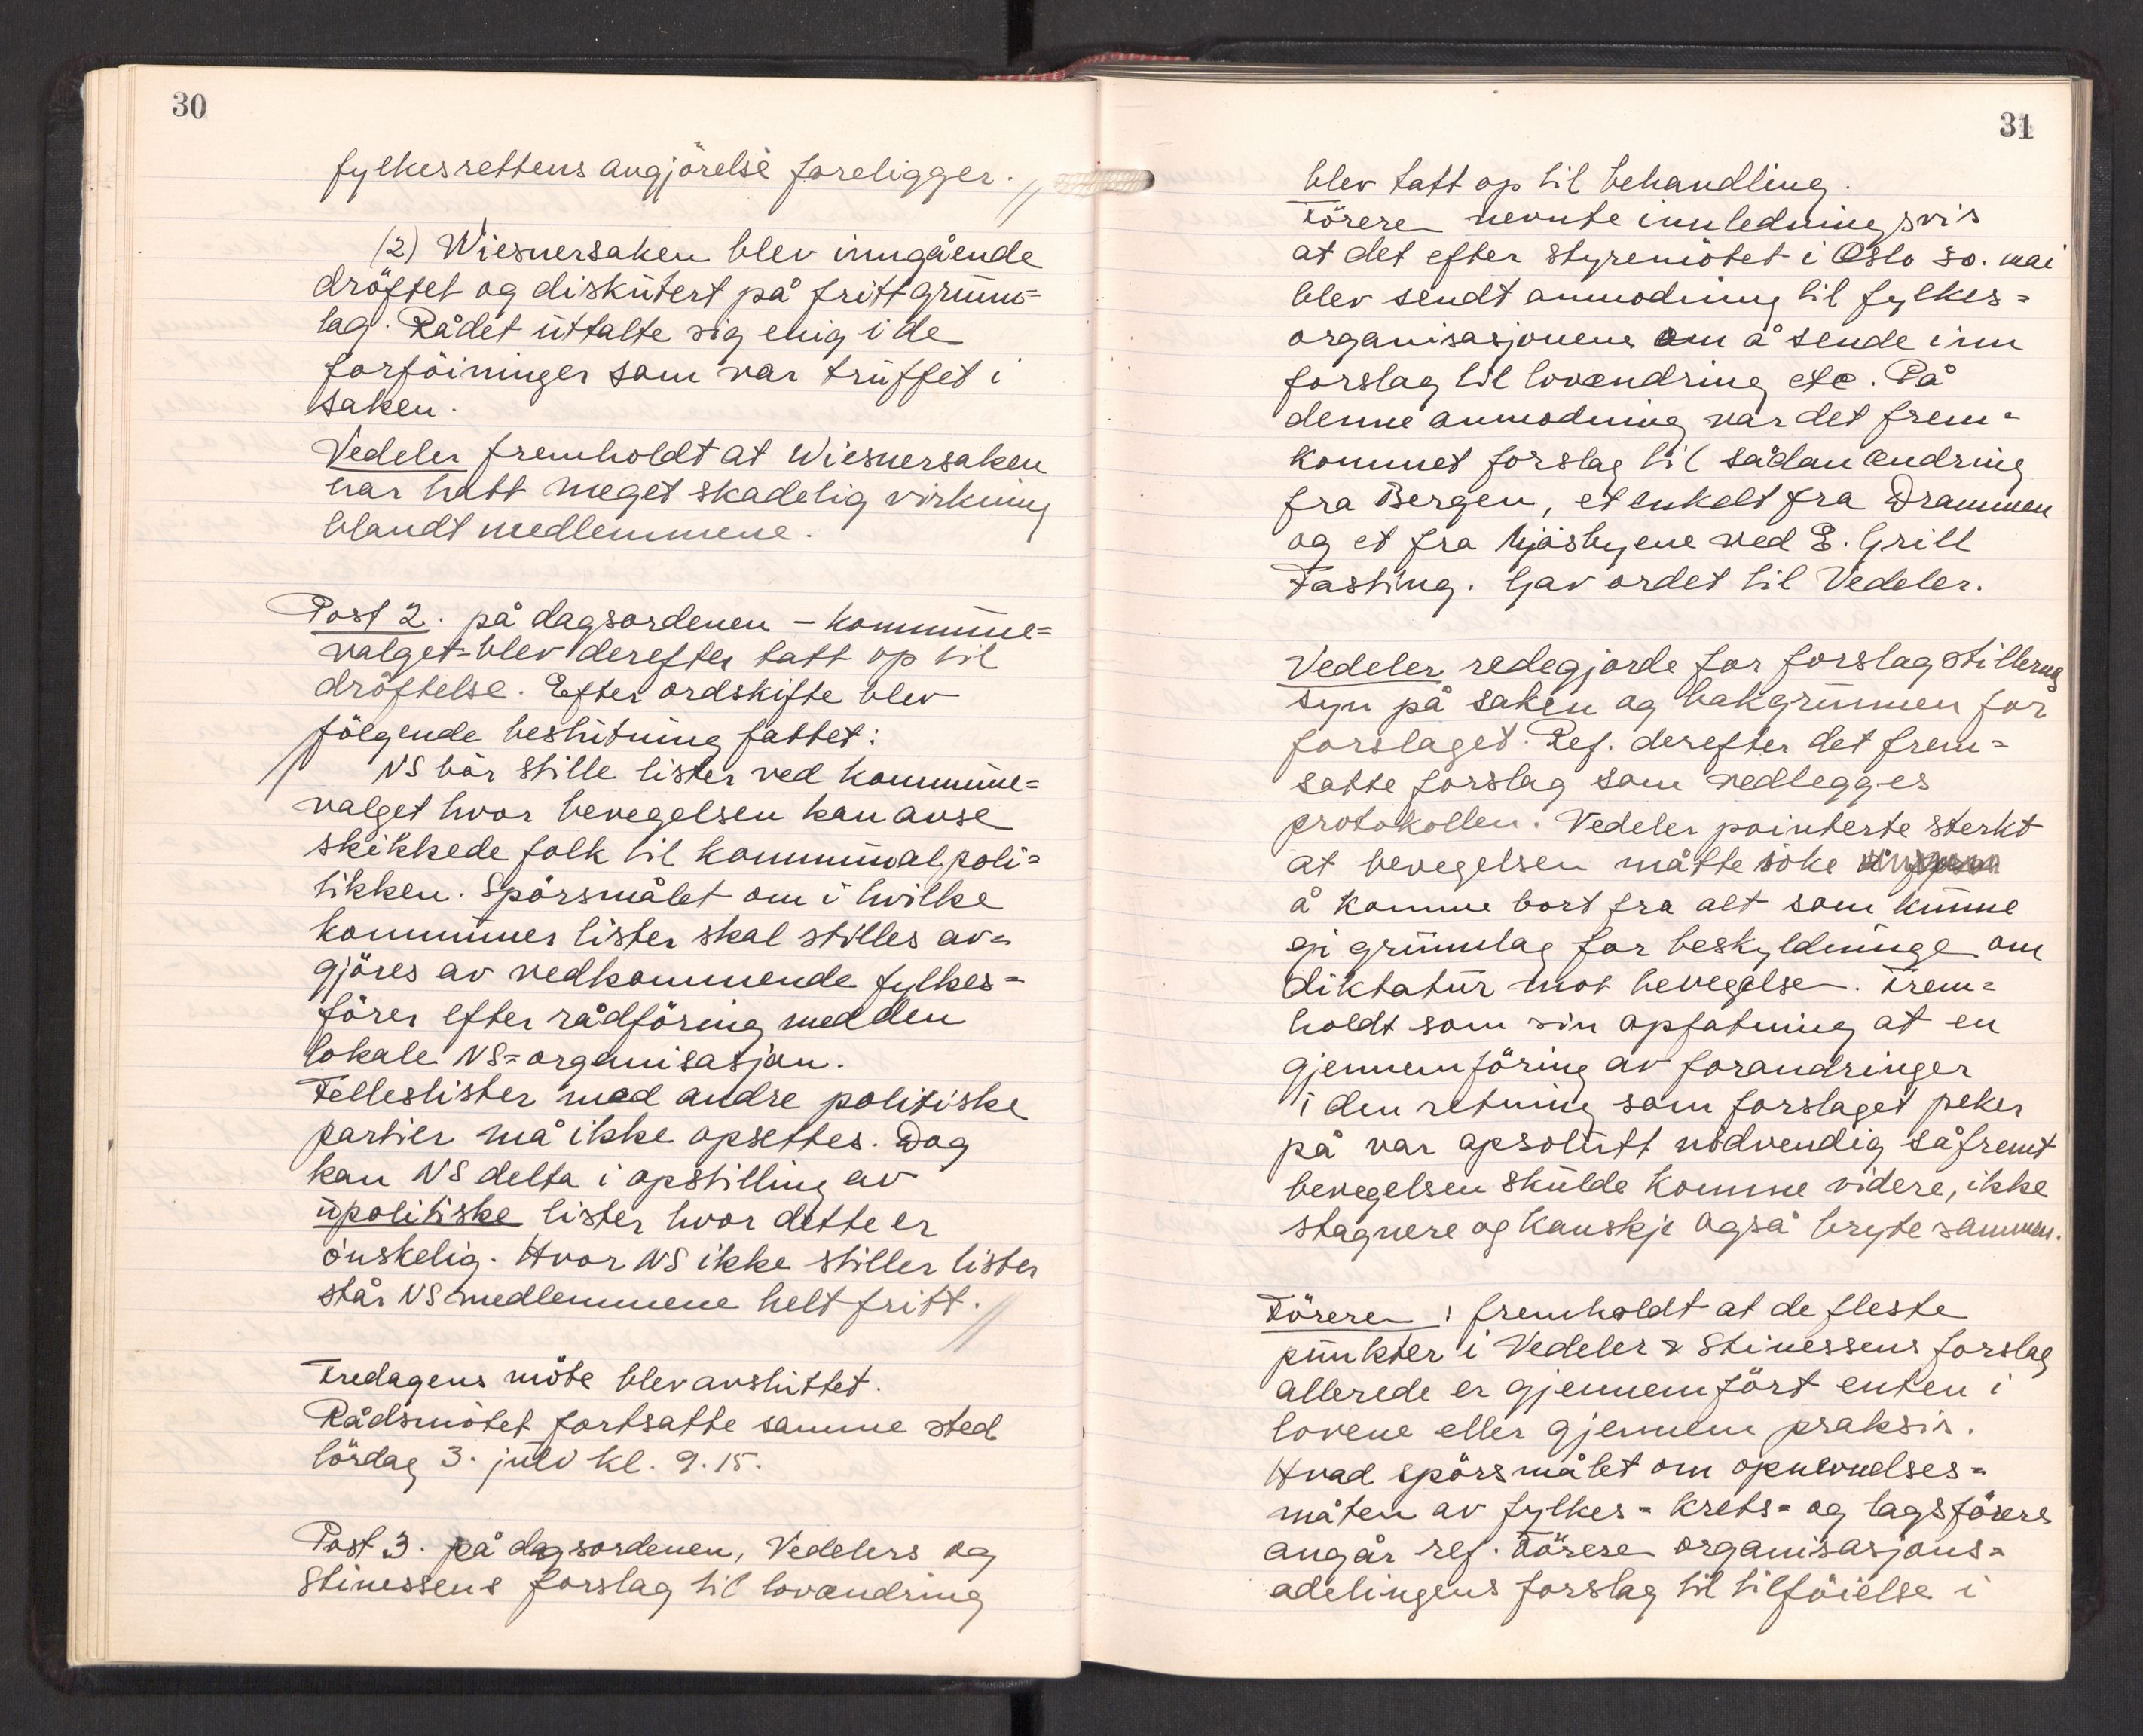 30
fylkesrettens avgjörelse foreligger.
(2) Wiesnersaken blev inngående
dröftet og diskutert på fritt grunn=
lag. Rådet uttalte sig enig i de
forföininger som var truffet i
saken.
Vedeler fremholdt at Wiesnersaken
har hatt meget skadelig virkning
blandt medlemmene.
Post 2. på dagsordenen - kommune=
valget - blev derefter tatt op til
dröftelse. Efter ordskifte blev
fölgende beslutning fattet:
NS bör stille lister ved kommune=
valget hvor bevegelsen kan avse
skikkede folk til kommunalpoli=
tikken. Spörsmålet om i hvilke
kommuner lister skal stilles av=
gjöres av vedkommende fylkes=
förer efter rådföring med den
lokale NS=organisasjon.
Felleslister med andre politiske
partier må ikke opsettes. Dog
kan NS delta i opstilling av
upolitiske lister hvor dette er
önskelig. Hvor NS ikke stiller lister
står NS medlemmene helt fritt.
Fredagens möte blev avsluttet.
Rådsmötet fortsatte samme sted
lördag 3. juli kl. 9.15.
Post 3. på dagsordenen, Vedelers og
Stinessens forslag til lovændring
31
blev tatt op til behandling.
Förere nevnte innledningsvis
at det efter styremötet i Oslo 30. mai
blev sendt anmodning til fylkes=
organisasjonene om å sende inn
forslag til lovændring etc. På
denne anmodning var det frem=
kommet forslag til sådan ændring
fra Bergen, et enkelt fra Drammen
og et fra Mjösbyene ved E. Grill
Fasting. Gav ordet til Vedeler.
Vedeler redegjorde for forslagstillernes
syn på saken og bakgrunnen for
forslaget. Ref. derefter det frem=
satte forslag som vedlegges
protokollen. Vedeler pointerte sterkt
at bevegelsen måtte söke
å komme bort fra alt som kunne
gi grunnlag for beskyldninge om
diktatur mot bevegelse. Frem=
holdt som sin opfatning at en
gjennemföring av forandringer
i den retning som forslaget peker
på var apsolutt nödvendig såfremt
bevegelsen skulde komme videre, ikke
stagnere og kanskje også bryte sammen.
Förere : fremholdt at de fleste
punkter i Vedeler & Stinessens forslag
allerede er gjennemfört enten i
lovene eller gjennem praksis.
Hvad spörsmålet om opnevnelses=
måten av fylkes= krets= og lagsförere
angår ref. Förere organisasjons=
adelingens forslag til tilföielse i